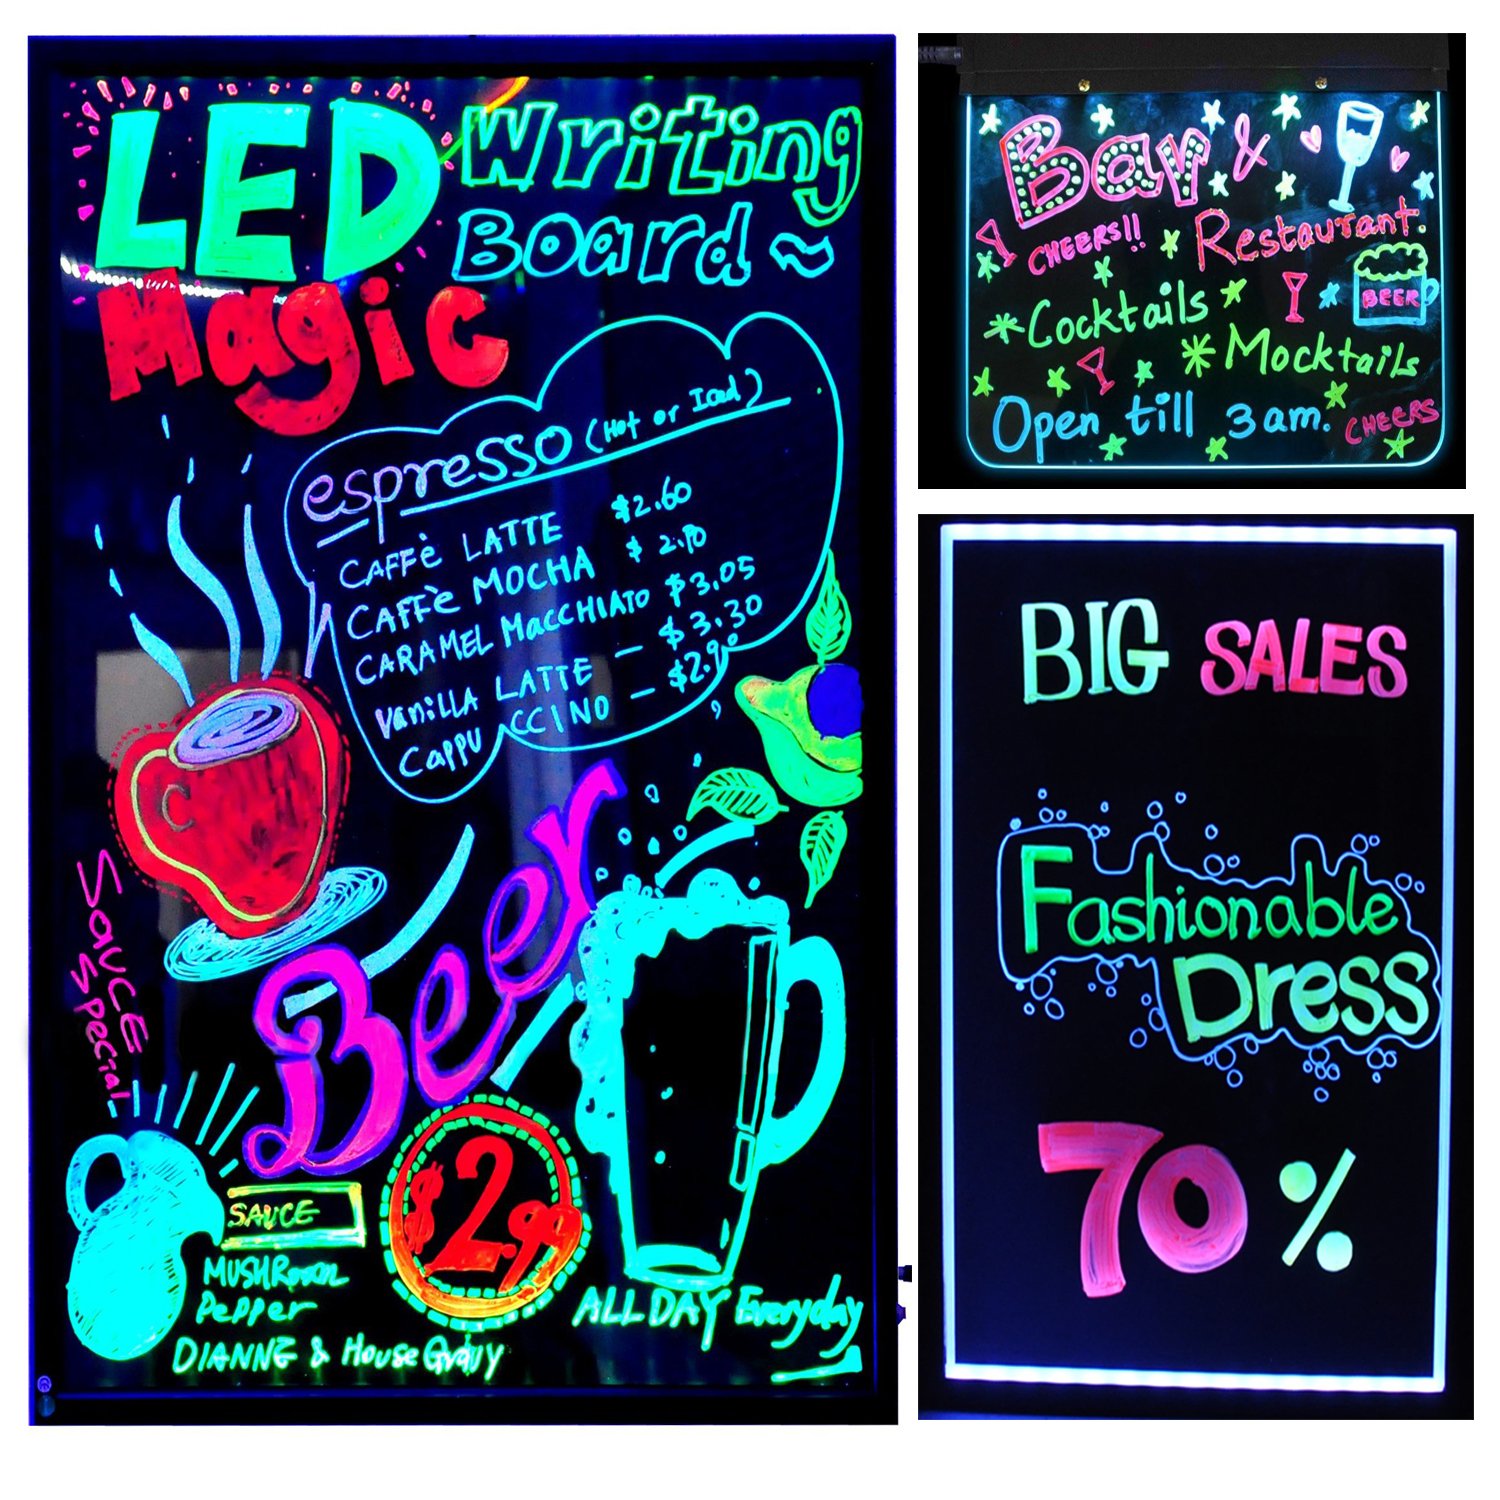 LED Writing
Board ~
Magic
espresso (Hot or Iced)
CAFFè LATTE $2.60
CAFFè MOCHA
CARAMEL MaccHIATO $3.05
VaniLLA LATTE — $3.30
Cappu CCINO — $2.9
Beer
Sauce
Special
SAUCE
MUSHRoom
PePPer
DIANNE & House Gravy
$2.99
ALL DAY Everyday
Bar &
CHEERS!!
Restaurant.
BEER
*Cocktails
*Mocktails
Open till 3am.
CHEERS
BIG SALES
Fashionable
Dress
70%